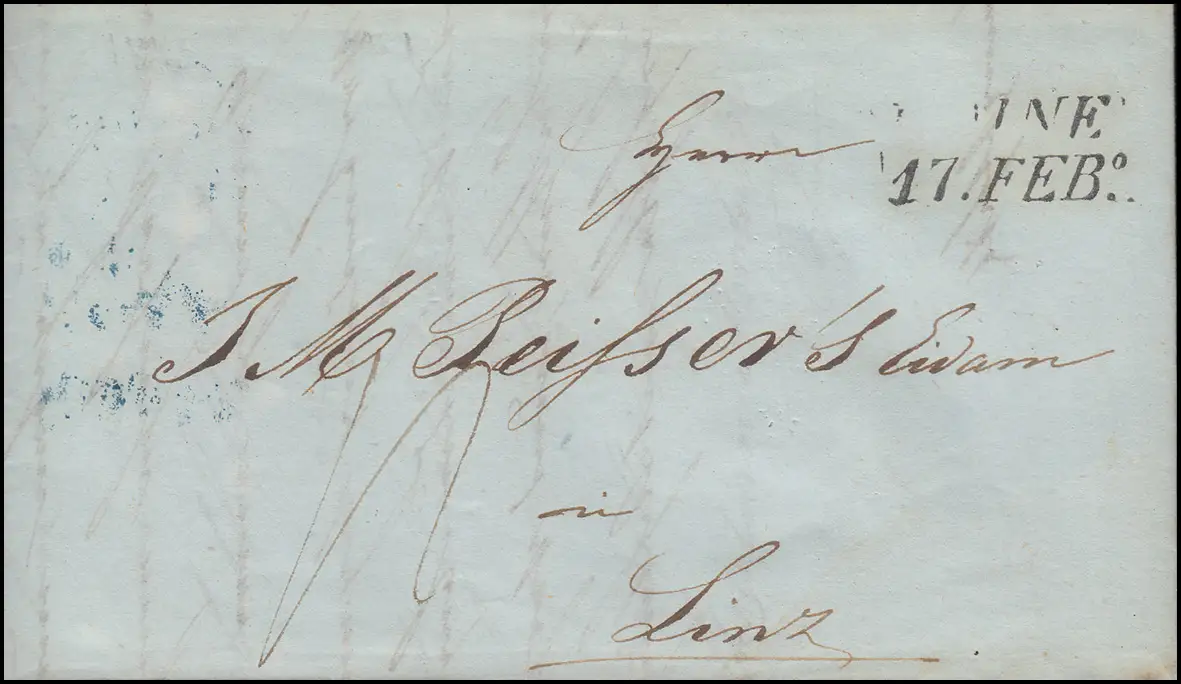 INE
17. FEBº.
Herrn
J M Reiſser's Eidam
in
Linz